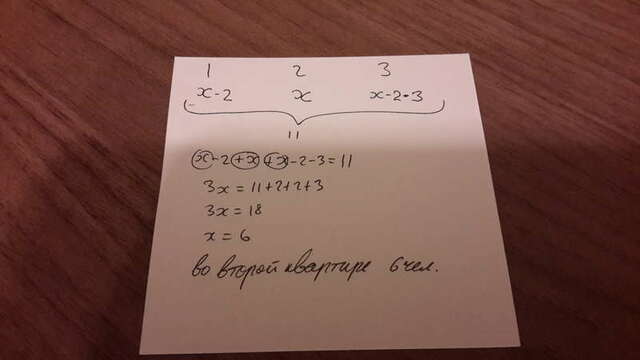 1 2 3
x-2 x x-2-3
11
x-2+x+x-2-3=11
3x=11+2+2+3
3x=18
x=6
во второй квартире 6 чел.